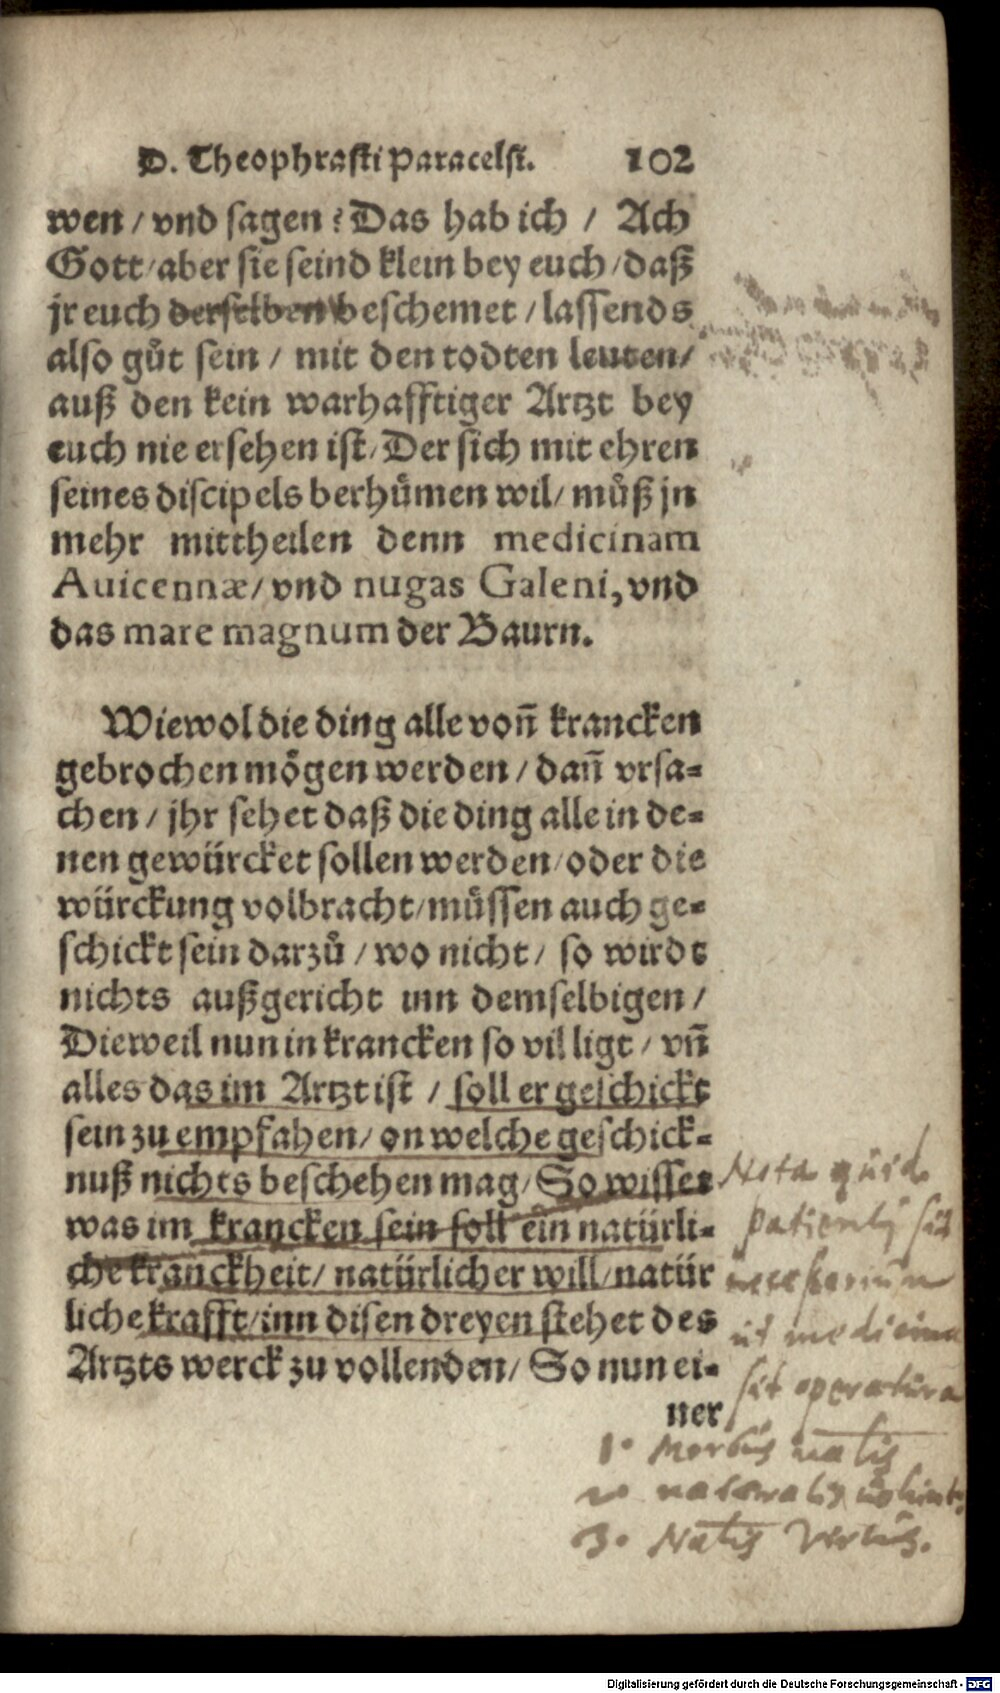 D. Theophrasti Paracelsi. 102
wen / vnd sagen? Das hab ich / Ach
Gott / aber sie seind klein bey euch / daß
jr euch derselben beschemet / lassends
also gůt sein / mit den todten leuten /
auß den kein warhafftiger Artzt bey
euch nie ersehen ist / Der sich mit ehren
seines discipels berhůmen wil / můß jn
mehr mittheilen denn medicinam
Auicennæ / vnd nugas Galeni, vnd
das mare magnum der Baurn.
Wiewol die ding alle von̄ krancken
gebrochen mögen werden / dan̄ vrsa-
chen / jhr sehet daß die ding alle in de-
nen gewürcket sollen werden / oder die
würckung volbracht / můssen auch ge-
schickt sein darzů / wo nicht / so wirdt
nichts außgericht inn demselbigen /
Dieweil nun in krancken so vil ligt / vn̄
alles das im Artzt ist / soll er geschickt
sein zu empfahen / on welche geschick-
nuß nichts beschehen mag / So wisset
was im krancken sein soll ein natürli-
che kranckheit / natürlicher will / natür
liche krafft / inn disen dreyen stehet des
Artzts werck zu vollenden / So nun ei-
ner
Nota quid
patienti sit
necessarium
ut medicina
sit operatura
1. Morbus nālis
2. naturalis
3. Nālis Virtus.
Digitalisierung gefördert durch die Deutsche Forschungsgemeinschaft - DFG